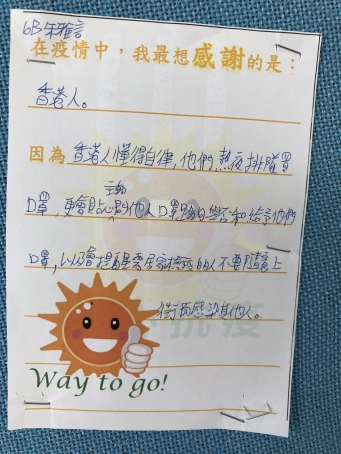 6B 朱雅言
在疫情中，我最想感謝的是：
香港人。
因為 香港人懂得自律，他們熬夜排隊買
口罩，更會貼心
主動
他人口罩
和給予他們
口罩，以及會提醒需居家檢疫的人不要隨意上
街而感染其他人。
抗疫
Way to go!